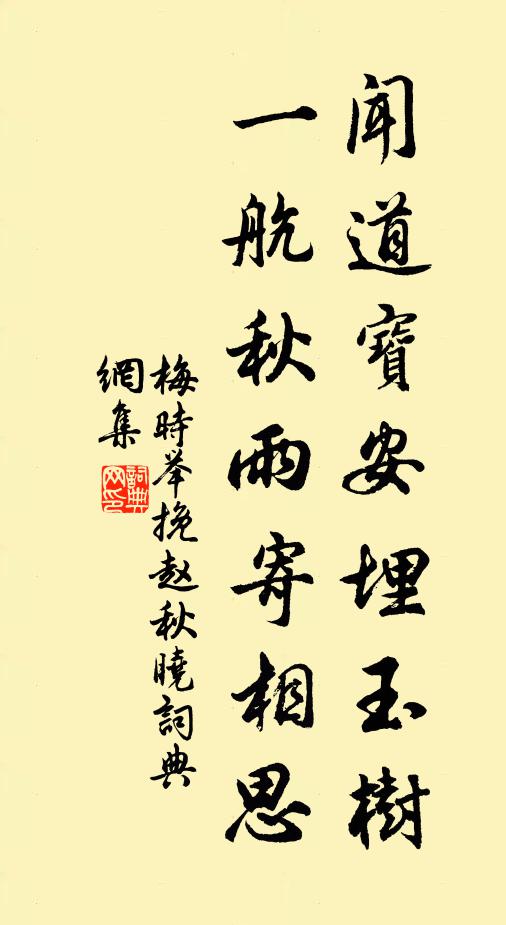 聞道寶安埋玉樹
一航秋雨寄相思
梅時举挽赵秋曉詞典
網集
詞典
网印